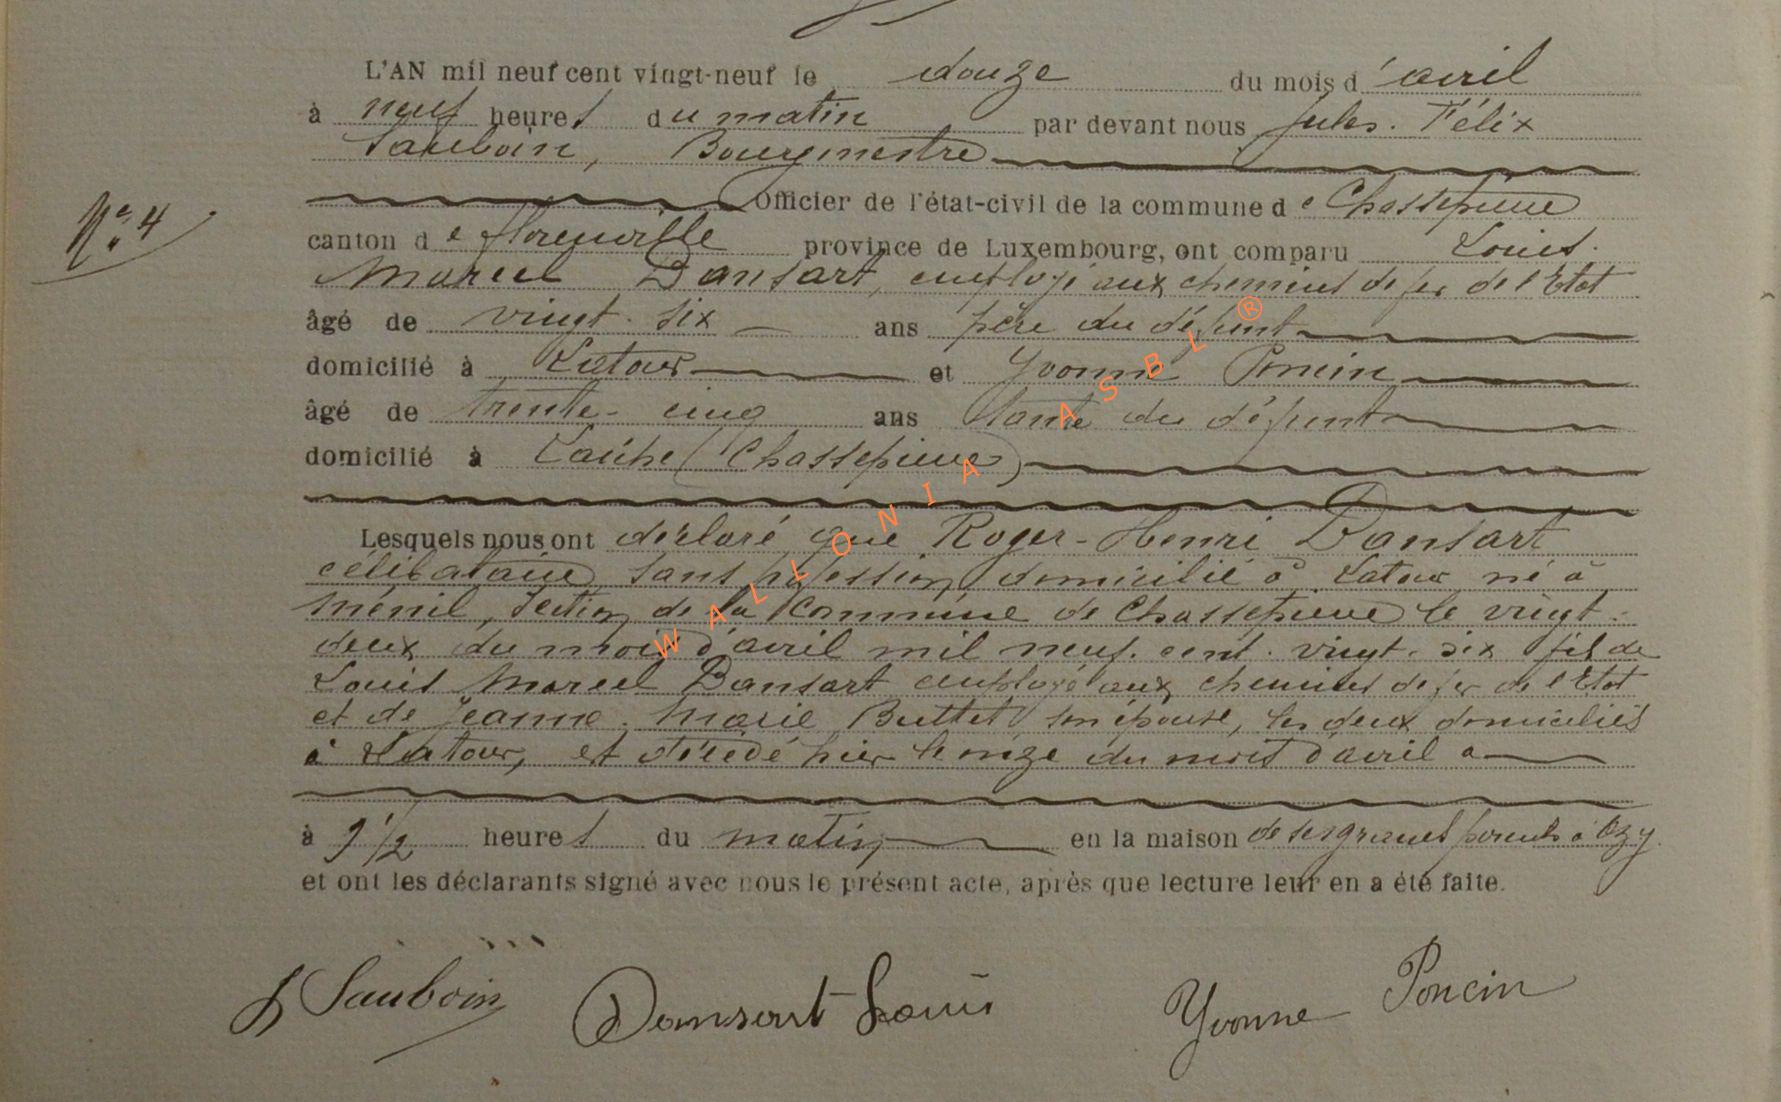 L'AN mil neuf cent vingt-neuf le douze du mois d'avril
à neuf heures du matin par devant nous Jules. Félix
Sauboin, Bourgmestre
Officier de l'état-civil de la commune de Chassepierre
N° 4
canton de Florenville province de Luxembourg, ont comparu Louis
Marcel Dansart, employé aux chemins de fer de l'Etat
âgé de vingt-six ans père du défunt
domicilié à Latour et Yvonne Poncin
âgé de trente-cinq ans tante du défunt
domicilié à Laiche (Chassepierre)
Lesquels nous ont déclaré que Roger-Henri Dansart
célibataire sans profession, domicilié à Latour né à
Ménil, section de la Commune de Chassepierre le vingt-
deux du mois d'avril mil neuf. cent. vingt. six fils de
Louis Marcel Dansart employé aux chemins de fer de l'Etat
et de Jeanne. Marie Buttet son épouse, les deux domiciliés
à Latour, est décédé hier le onze du mois d'avril à
à 9 1/2 heures du matin en la maison de ses grands parents à Azy
et ont les déclarants signé avec nous le présent acte, après que lecture leur en a été faite.
J Sauboin Dansart Louis Yvonne Poncin
WALLONIA ASBL ®